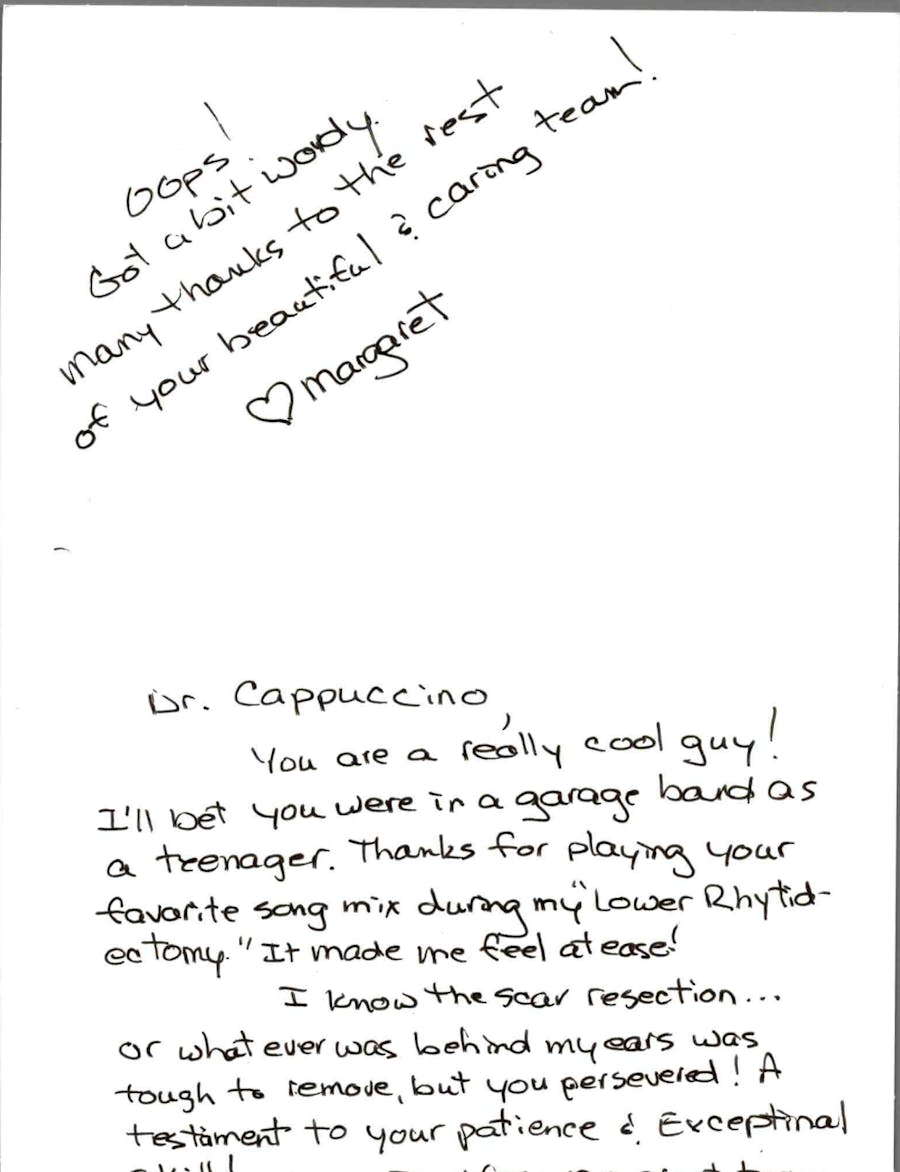 Oops!
Got a bit wordy.
many thanks to the rest
of your beautiful & caring team!
♡ margaret
Dr. Cappuccino,
You are a really cool guy!
I'll bet you were in a garage band as
a teenager. Thanks for playing your
favorite song mix during my "Lower Rhytid-
ectomy." It made me feel at ease!
I know the scar resection...
or what ever was behind my ears was
tough to remove, but you persevered! A
testament to your patience & Exceptinal
skill!